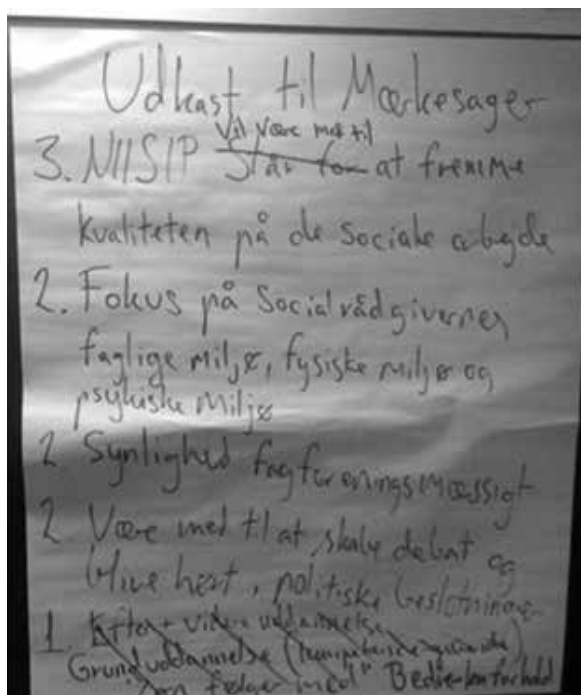 Udkast til Mærkesager
Vil være med til
3. NIISIP Står for at fremme
kvaliteten på de sociale arbejde
2. Fokus på Socialrådgivernes
faglige miljø, fysiske miljø og
psykiske miljø
2 Synlighed fagforeningsmæssigt
2 Være med til at skabe debat og
blive hørt, politiske beslutninger
1. Efter + videre uddannelse
Grunduddannelse
følger med" Bedre